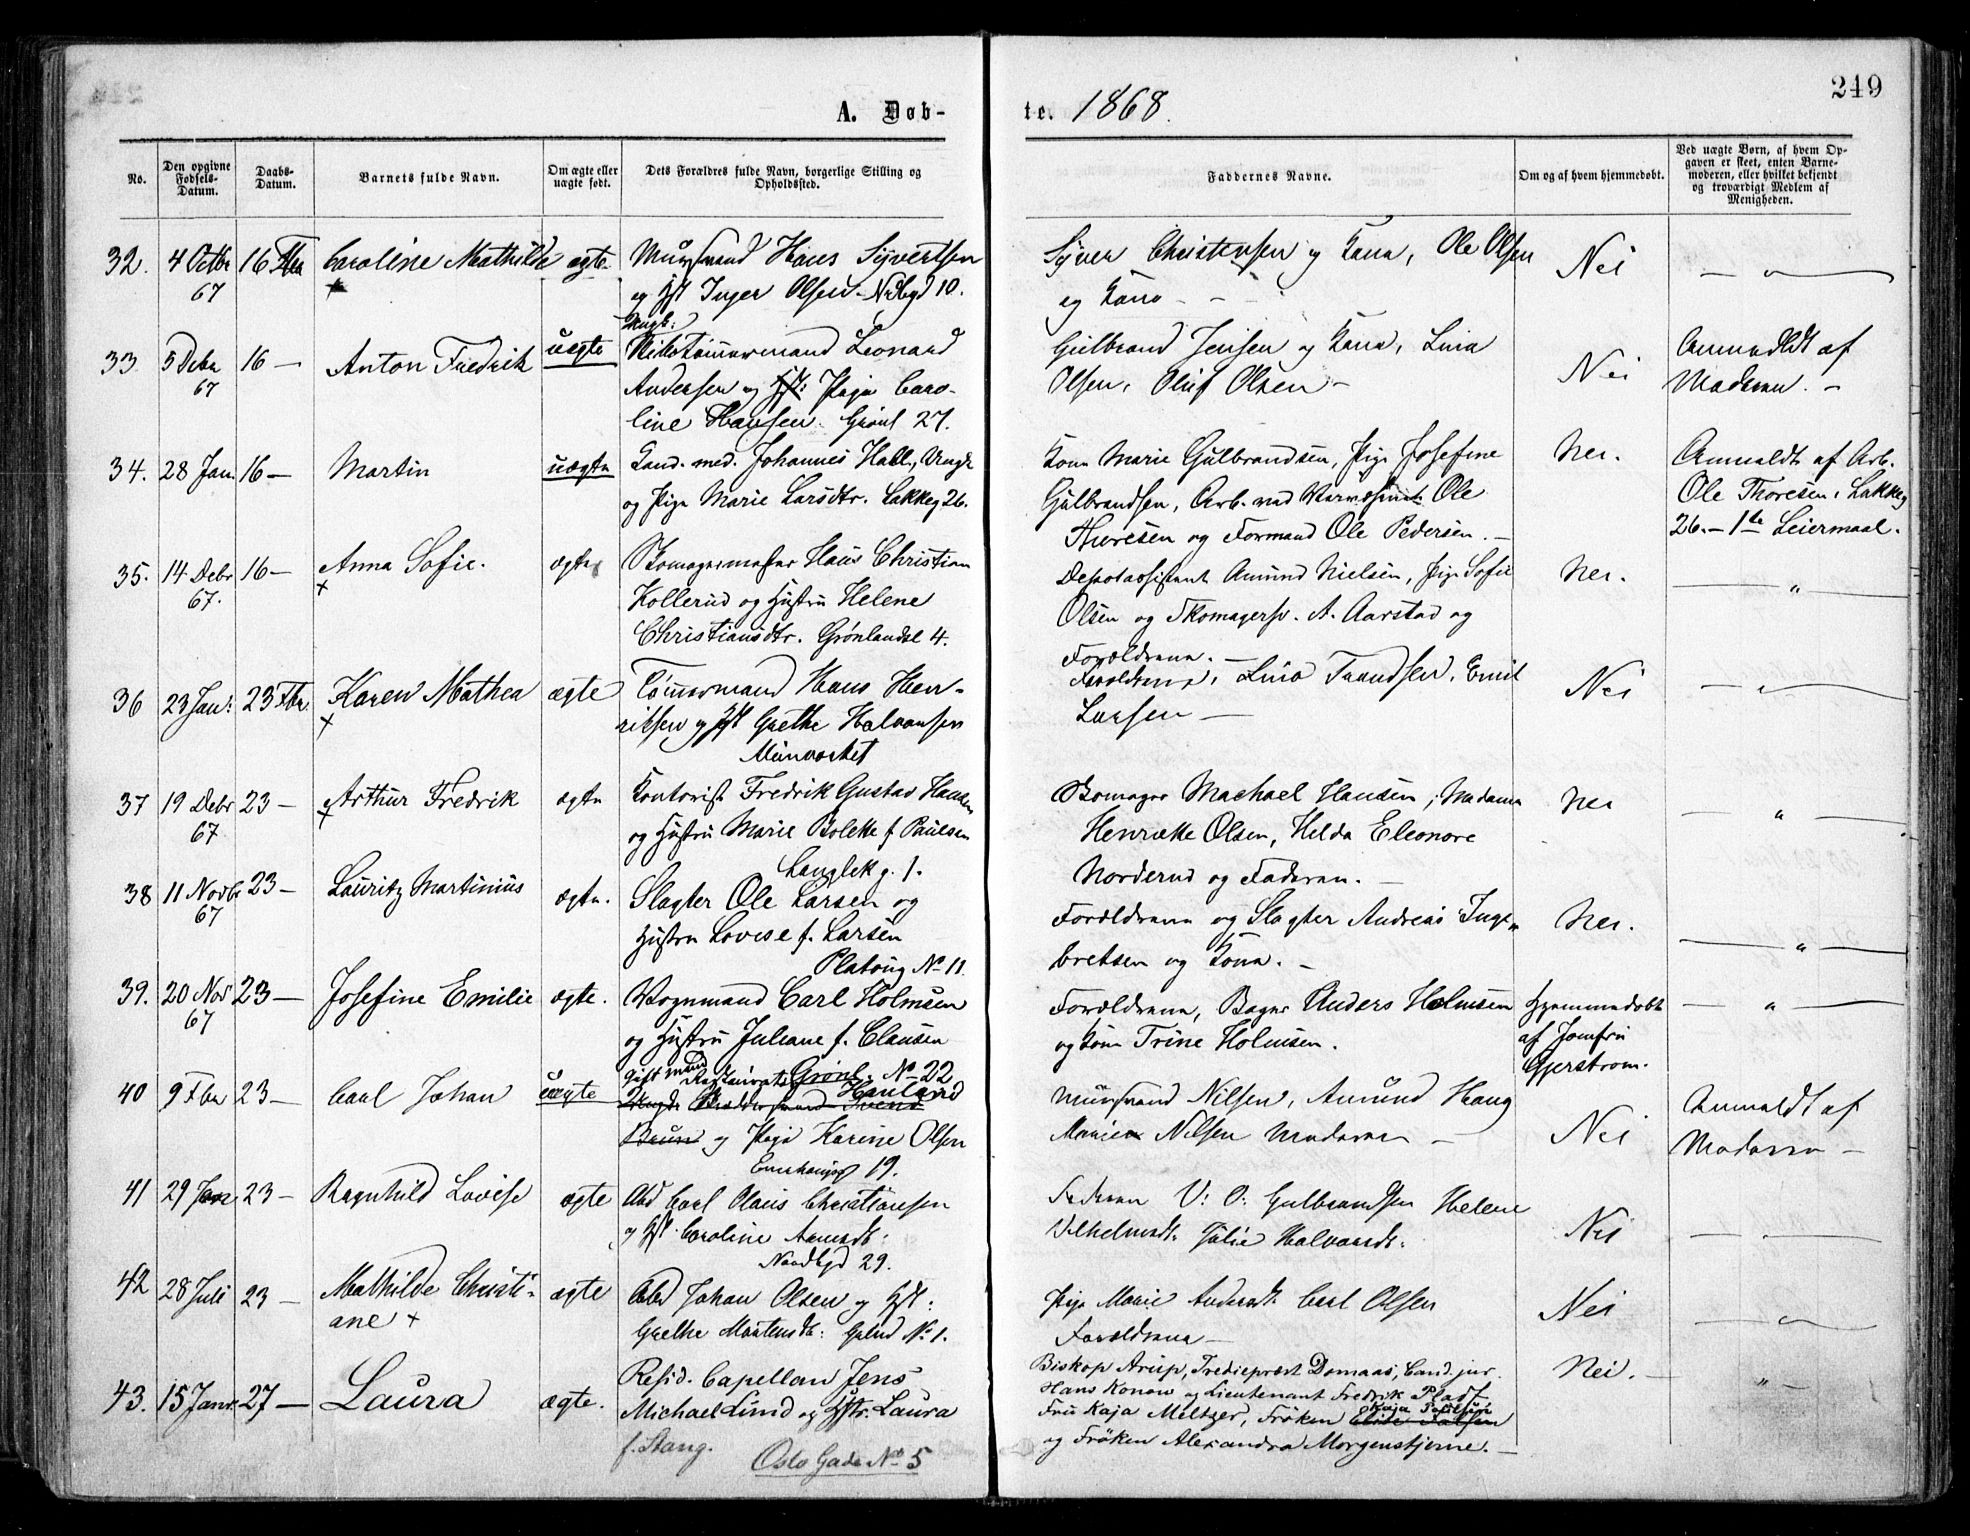 249
A. Døb-
te. 1868.
No.
Den opgivne Fødsels-Datum.
Daabs-Datum.
Barnets fulde Navn.
Om ægte eller uægte født.
Dets Forældres fulde Navn, borgerlige Stilling og Opholdssted.
Faddernes Navne.
Om og af hvem hjemmedøbt.
Ved uægte Børn, af hvem Opgaven er skeet, enten Barnemoderen, eller hvilket bekjendt og troværdigt Medlem af Menigheden.
32. 4 Octbr 67 16 Caroline Mathilde ægte
Hans Syvertsen
og Inger Olsen. 10.
Syver Christensen og Kone, Ole Olsen
og Kone
Nei
33 5 Debr 67 16 — Anton Fredrik uægte
Ungk:
Tømmermand Leonard
Andersen og Pige Caro-
line Hansen. Grønl 27.
Gulbrand Jensen og Kone, Lina
Olsen, Oluf Olsen —
Nei
Anmeldt af
Moderen. —
34. 28 Jan. 16 — Martin uægte
Cand. med. Johannes Hall, Ungk
og Pige Marie Larsdtr. Lakkeg 26.
Kone Marie Gulbrandsen, Pige Josefine
Gulbrandsen, Arb. ved Ole
Thoresen og Formand Ole Pedersen. —
Nei.
Anmeldt af Arb.
Ole Thoresen, Lakkeg
26. — 1ste Leiermaal.
35. 14 Debr 67. 16 — Anna Sofie. ægte
Skomagermester Hans Christian
Kollerud og Hustru Helene
Christiansdtr. Grønlandsl 4.
Depotassistent Amund Nielsen, Pige Sofie
Olsen og Skomagersv. A. Aarstad og
Forældrene. —
Nei.
36 23 Jan: 23 Fbr. Karen Mathea ægte
Tømmermand Hans Hen-
riksen og Hst Grethe Halvorsen
Forældrene, Lina Emil
Larsen —
Nei
37 19 Debr 67 23 — Arthur Fredrik ægte
Kontorist Fredrik Gustav Hansen
og Hustru Marie Bolette f Paulsen
Langlek g. 1.
Skomager Machael Hansen, Madame
Henriette Olsen, Helda Eleonore
Norderud og Faderen. —
Nei
38 11 Novbr 67 23 — Lauritz Martinius ægte.
Slagter Ole Larsen og
Hustru Lovise f. Larsen
Platoug No 11.
Forældrene og Slagter Andreas Inge-
bretsen og Kone. —
Nei.
39. 20 Nov 67 23 — Josefine Emilie ægte.
Vognmand Carl Holmsen
og Hustru Juliane f. Clausen
Grønl. No 22
Forældrene, Bager Anders Holmsen
og Kone Trine Holmsen.
Hjemmedøbt
af Jomfru
Gjerstrøm.
40 9 Fbr 23 — Carl Johan uægte
Gift mand
og Pige Karine Olsen
19.
Nilsen, Amund Haug
Nilsen Moderen —
Nei
Anmeldt af
Moderen —
41 29 Jan 23 — Ragnhild Lovise ægte
Arbd Carl Olaus Christiansen
og Hst. Caroline
Nordbyd 29.
Faderen V: O: Gulbrandsen Helene
Vilhelmsdt. Julie Halvorsdt.
Nei
42 28 Juli 23 — Mathilde Christi-
ane ægte
Arbd Johan Olsen og Hst:
Grethe Mortensdt: Grlnd No 1.
Pige Marie Andersdt. Carl Olsen
Forældrene —
Nei
43. 15 Janr. 27 — Laura ægte.
Resid. Capellan Jens
Michael Lund og Hstr. Laura
f. Stang.
Oslo Gade No 5
Biskop Arup, Tredieprest Domaas, Cand. jur.
Hans Konow og Lieutenant Fredrik Pladt
Fru Kaja Meltzer, Frøken Kaja Poulsen
og Frøken Alexandra Morgenstjerne. —
Nei.